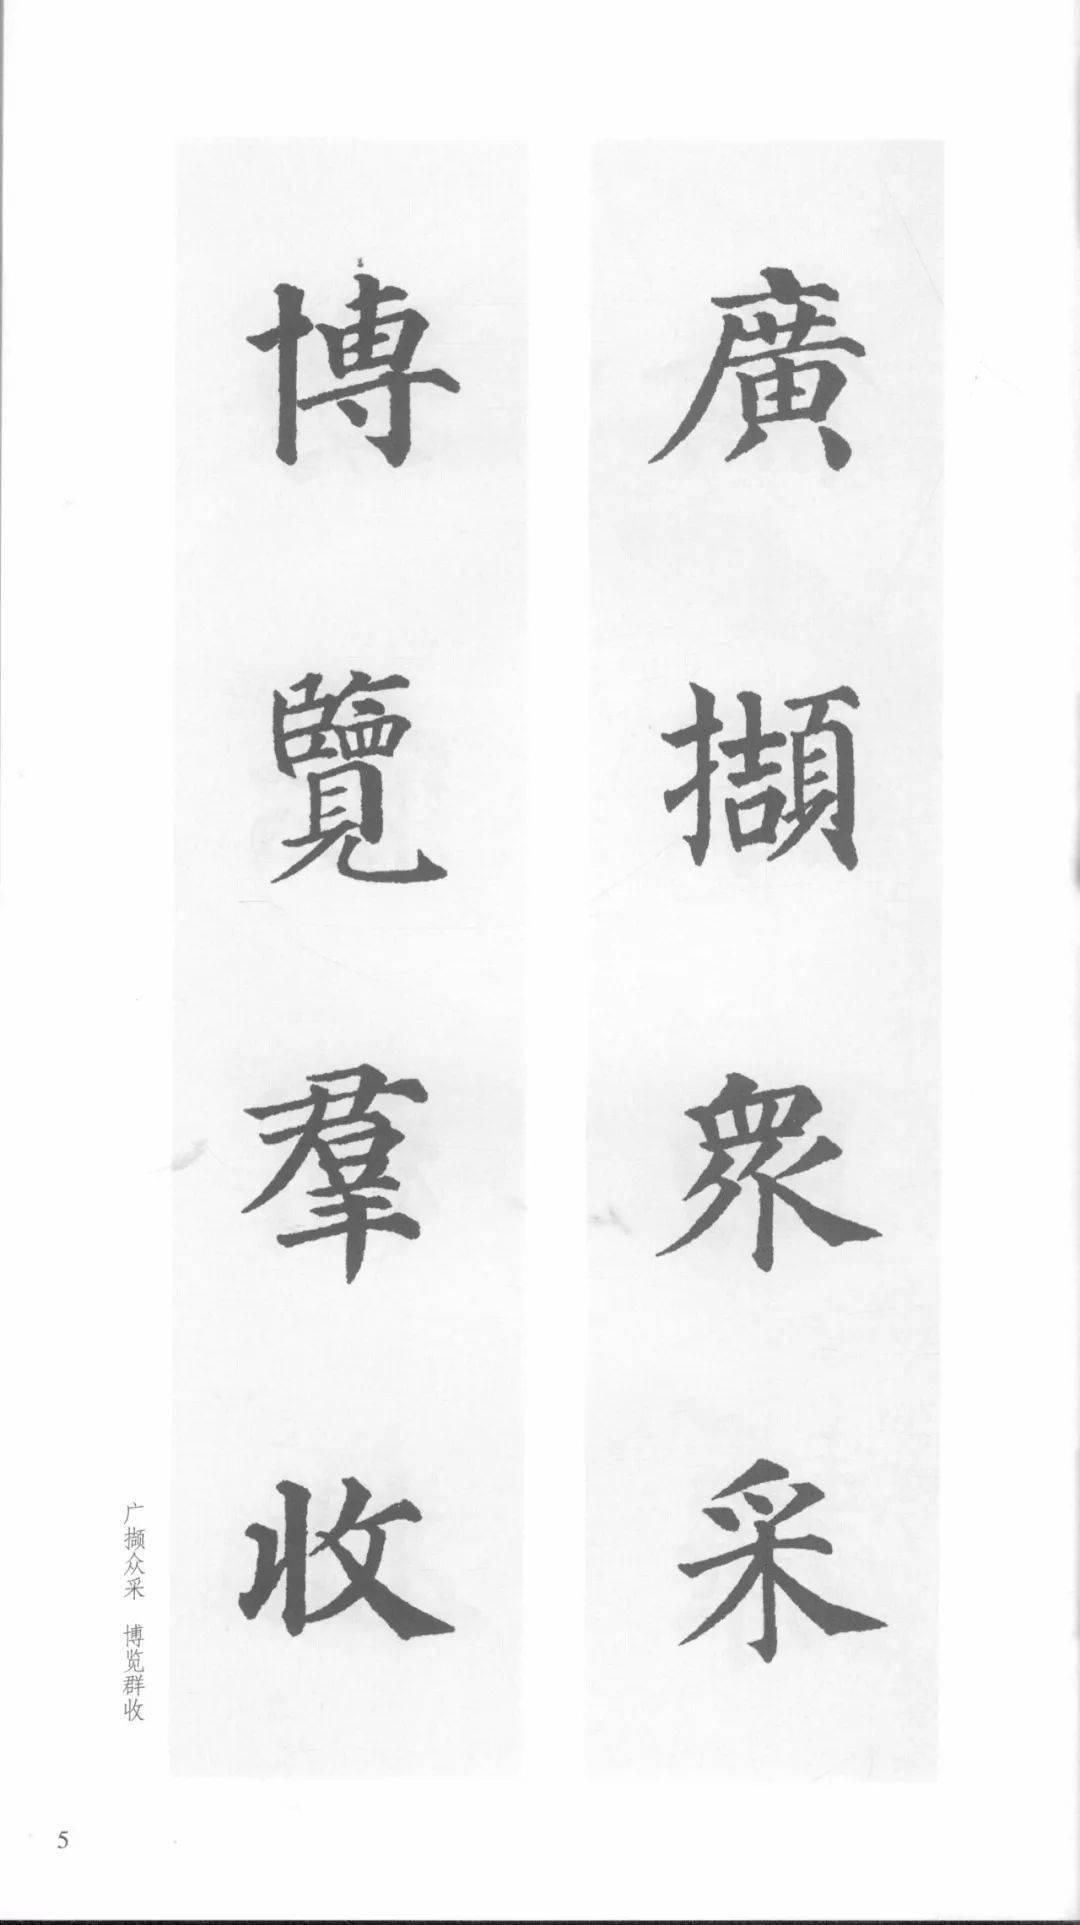 廣擷衆采
博覽羣收
广撷众采 博览群收
5